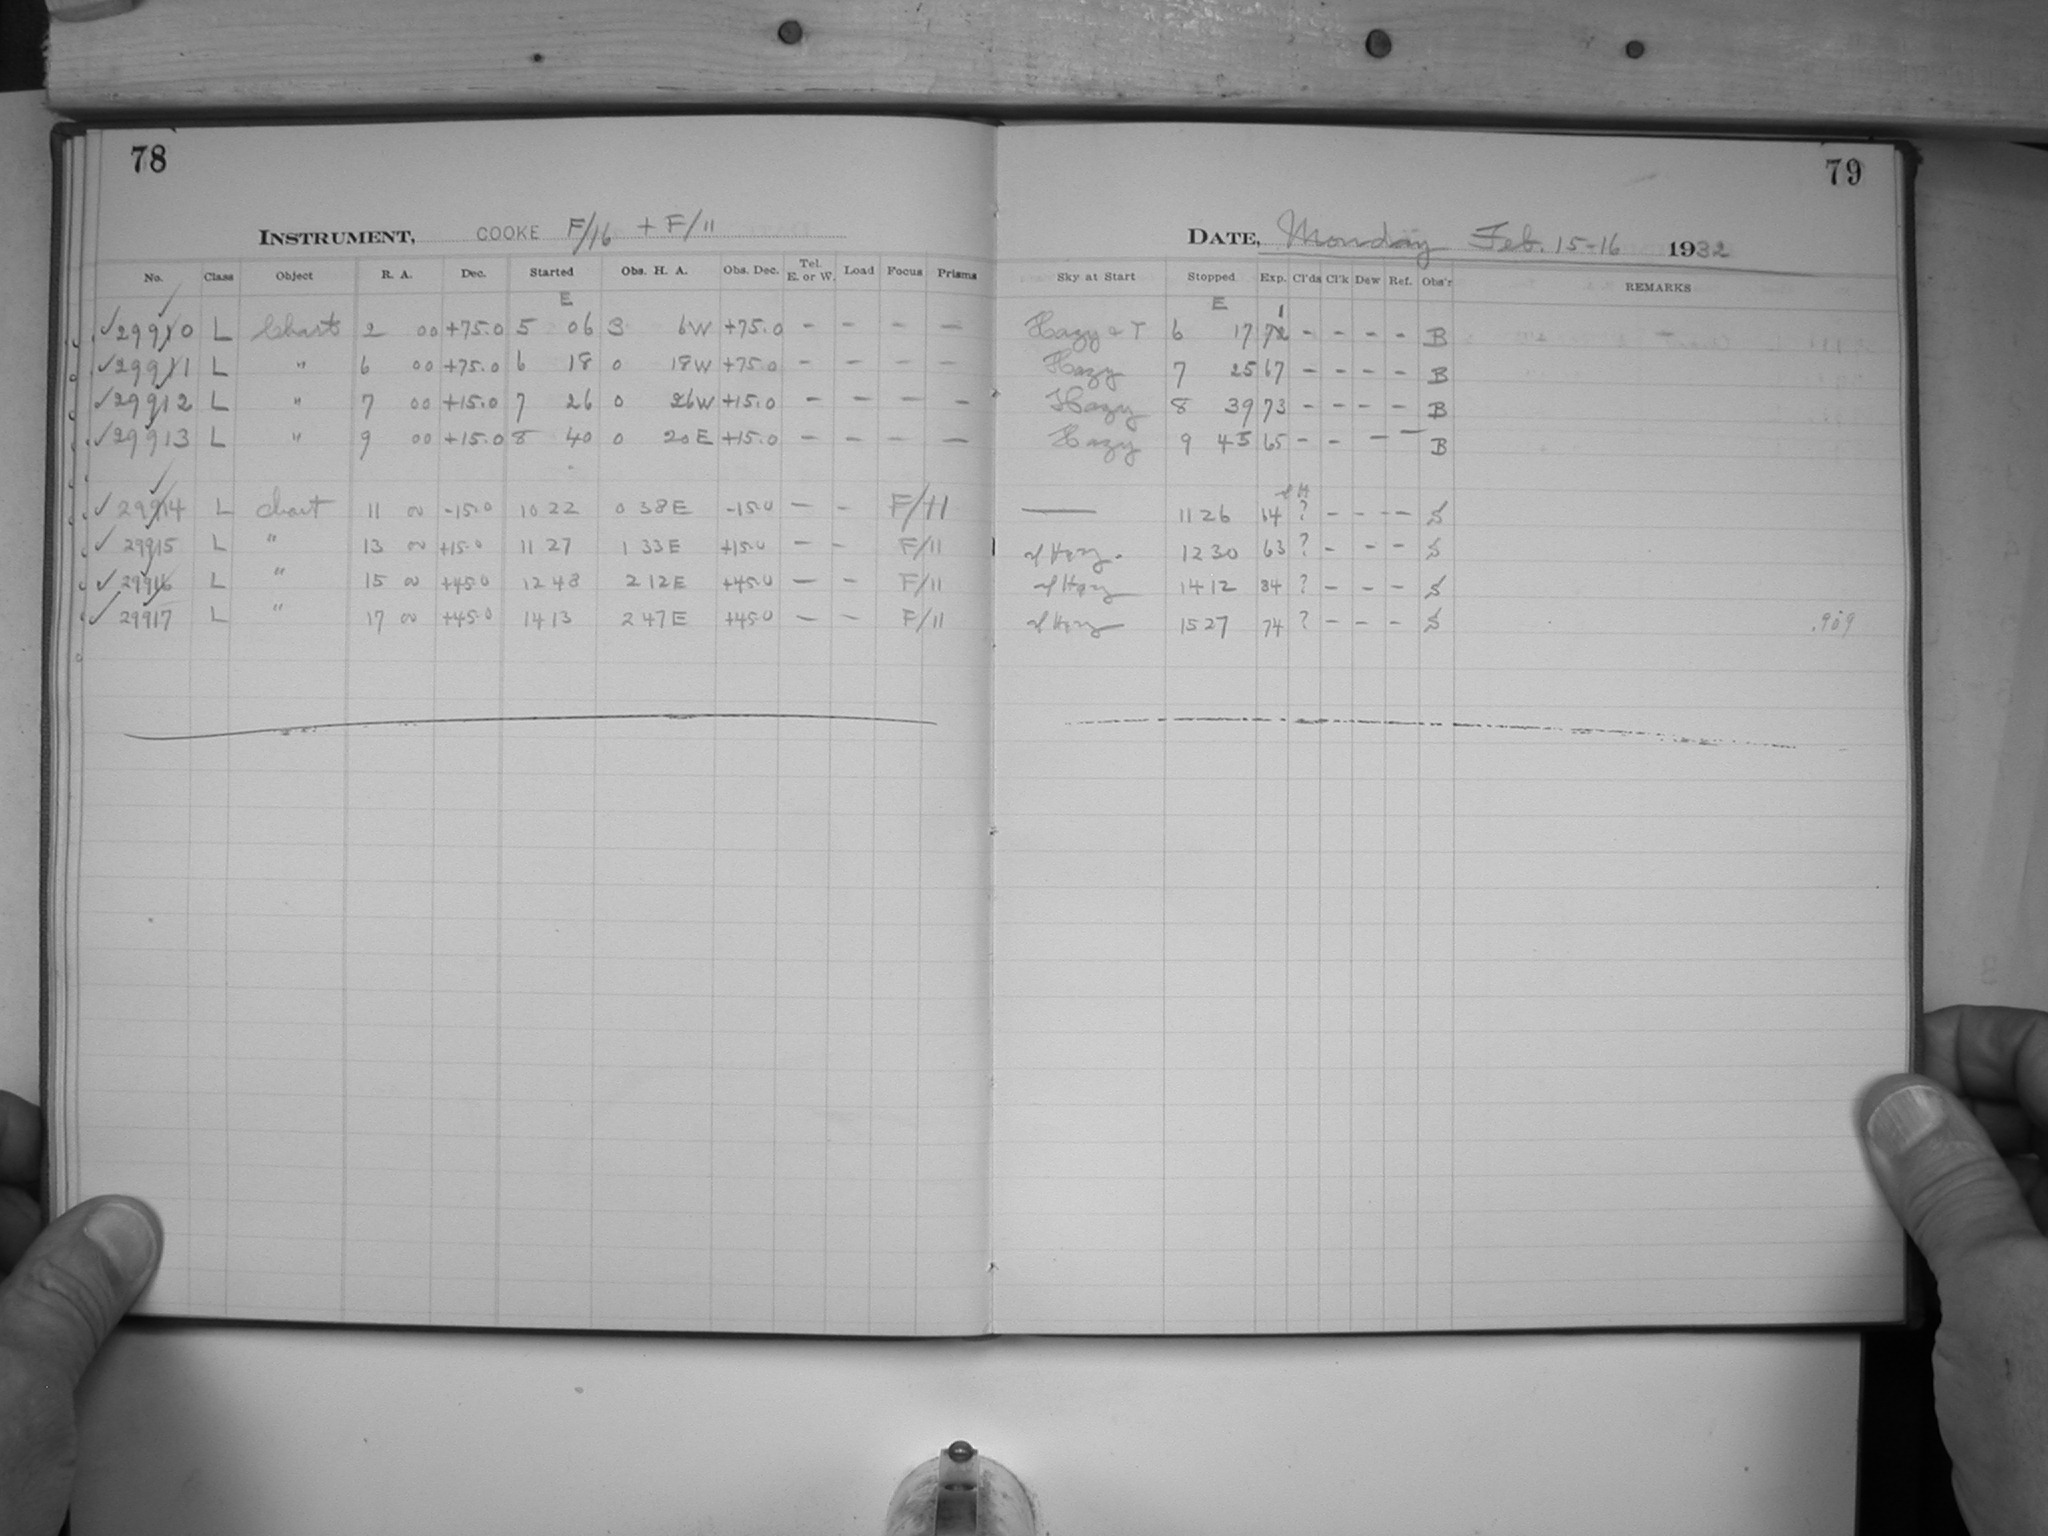 78
INSTRUMENT, COOKE F/16 + F/11
No. Class Object R. A. Dec. Started Obs. H. A. Obs. Dec. Tel. E. or W. Load Focus Prisms
E
✓29910 L Chart 2 00 +75.0 5 06 3 6W +75.0 – – – –
✓29911 L " 6 00 +75.0 6 18 0 18W +75.0 – – – –
✓29912 L " 7 00 +15.0 7 26 0 26W +15.0 – – – –
✓29913 L " 9 00 +15.0 8 40 0 20E +15.0 – – – –
✓29914 L Chart 11 00 -15.0 10 22 0 38E -15.0 – – F/11
✓29915 L " 13 00 +15.0 11 27 1 33E +15.0 – – F/11
✓29916 L " 15 00 +45.0 12 48 2 12E +45.0 – – F/11
✓29917 L " 17 00 +45.0 14 13 2 47E +45.0 – – F/11
79
DATE, Monday Feb. 15-16 1932
Sky at Start Stopped Exp. Cl'ds Cl'k Dew Ref. Obs'r REMARKS
E 1
Hazy & T 6 17 72 – – – – B
Hazy 7 25 67 – – – – B
Hazy 8 39 73 – – – – B
Hazy 9 45 65 – – – – B
— 11 26 64 ? – – – – S
Hazy. 12 30 63 ? – – – S
Hazy 14 12 84 ? – – – S
Hazy 15 27 74 ? – – – S .909